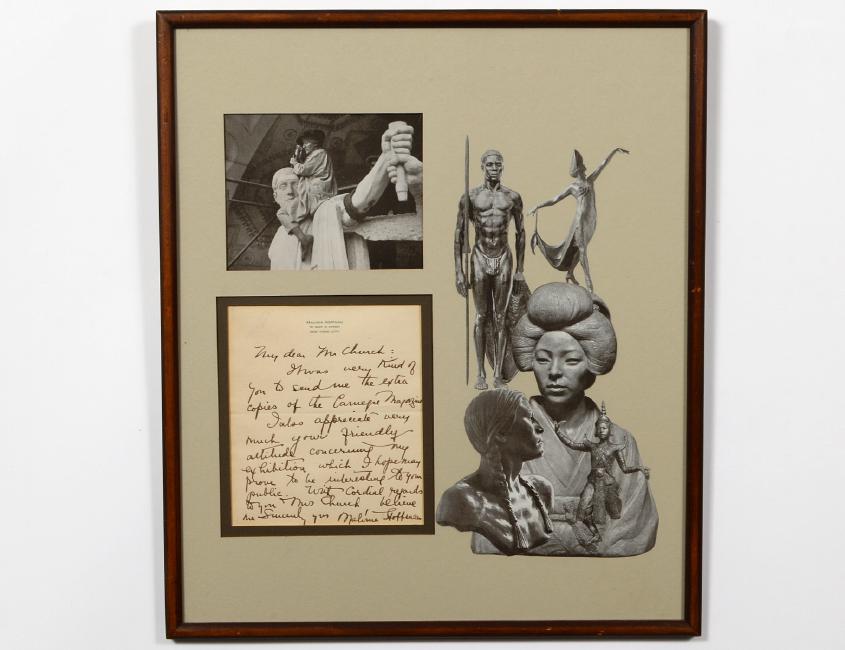 MALVINA HOFFMAN
NEW YORK CITY
My dear Mr Church:
It was very kind of
you to send me the extra
copies of the Carnegie Magazine
I also appreciate very
much your friendly
attitude concerning my
exhibition which I hope may
prove to be interesting to your
public. With Cordial regards
to you Mrs Church believe
me Sincerely yrs Malvina Hoffman